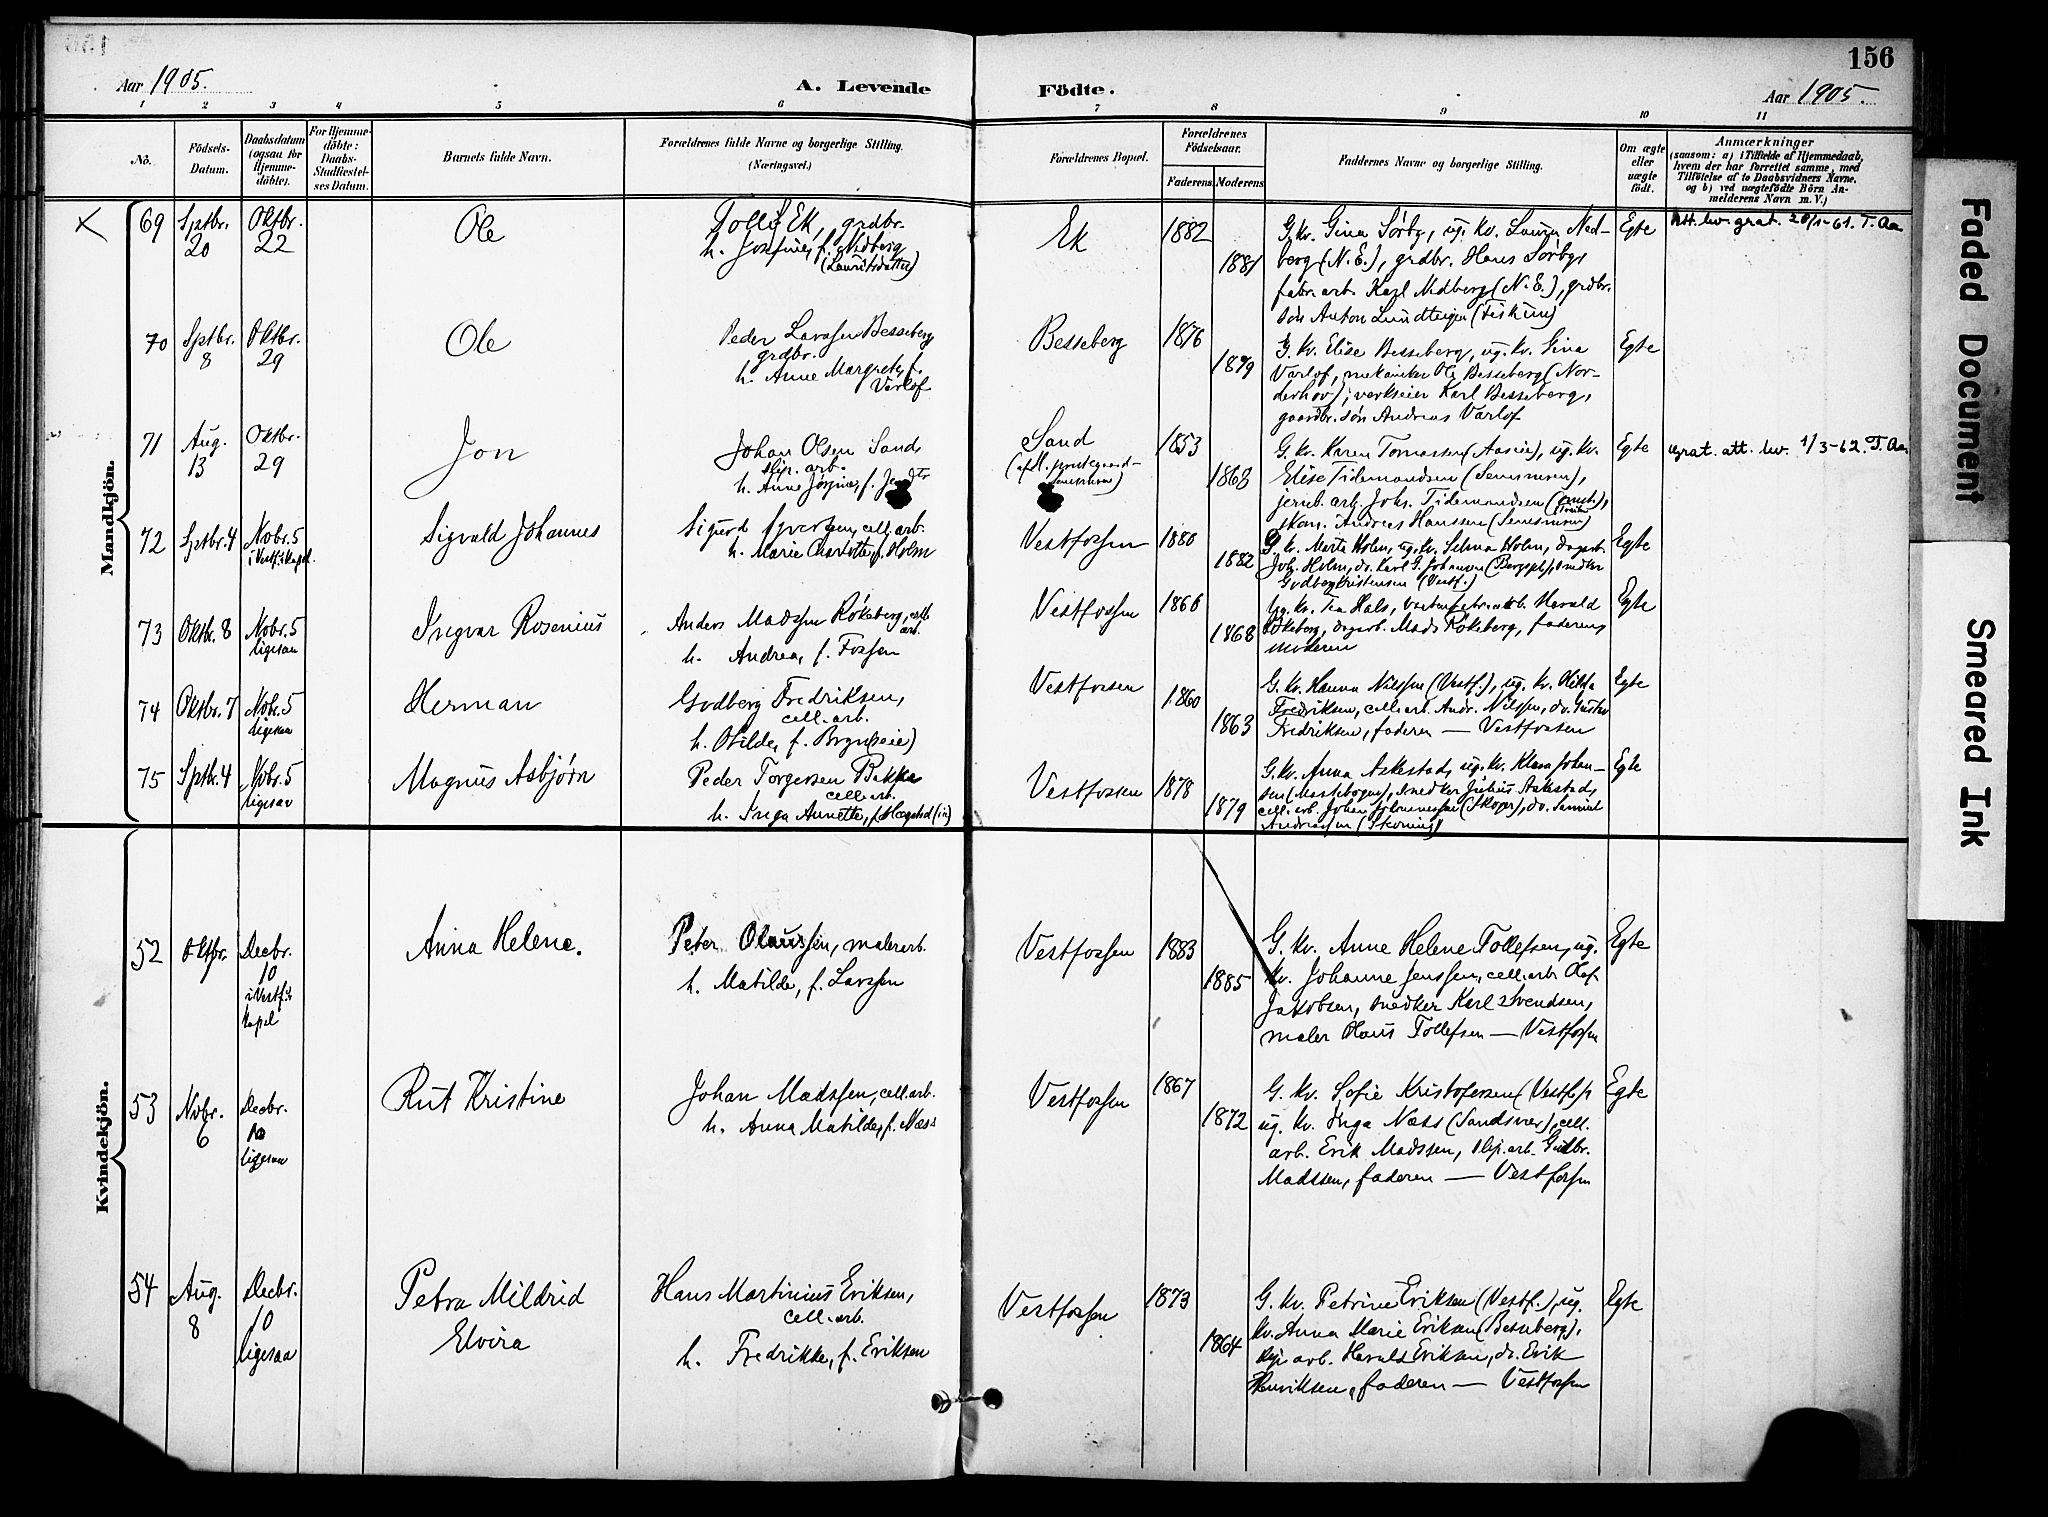 156
Aar 1905.
A. Levende Födte.
Aar 1905.
1 2 3 4 5 6 7 8 9 10 11
No.
Födsels-
Datum.
Daabsdatum
(ogsaa for
Hjemme-
döbte).
For Hjemme-
döbte:
Daabs-
Stadfæstel-
ses Datum.
Barnets fulde Navn.
Forældrenes fulde Navne og borgerlige Stilling.
(Næringsvei.)
Forældrenes Bopæl.
Forældrenes
Födselsaar.
Faderens Moderens
Faddernes Navne og borgerlige Stilling.
Om ægte
eller
uægte
födt.
Anmærkninger
(saasom: a) i Tilfælde af Hjemmedaab,
hvem der har forrettet samme, med
Tilföielse af to Daabsvidners Navne,
og b) ved uægtefödte Börn An-
melderens Navn m. V.)
Mandkjön.
69
Sptbr.
20
Oktbr.
22
Ole
Ek, grdbr.
h. Josefine, f. Nidberg
(Lauritsdatter)
Ek
1882
1881
G. kv. Gina Sørby, ug. kv. Laura Ned-
berg (N. E.), grdbr. Hans Sørby,
fabr. arb. Karl Nedberg (N. E.), grdbr.
søn Anton (Fiskum)
Egte
Att. lev. grat. 20/1-61. T. Aa
70
Sptbr.
8
Oktbr.
29
Ole
Peder Larssen Besseberg
grdbr.
h. Anne Margrete, f.
Varlof
Besseberg
1876
1879
G. kv. Elise Besseberg, ug. kv. Gina
Varlof, mekaniker Ole Besseberg (Nor-
derhov), verkseier Karl Besseberg,
gaardbr. søn Andreas Varlof
Egte
71
Aug.
13
Oktbr.
29
Jon
Johan Olsen Sand
slip. arb.
h. Anne Jørgine, f.
Sand
1853
1868
G. kv. Karen Tomassen ug. kv.
Elise Tidemandsen
jernb. arb. Johs. Tidemandsen
skom. Andreas Hanssen
Egte
ugrat. att. lev. 1/3-62. T. Aa
72
Sptbr. 4
Nobr. 5
i Vestf.s kapel.
Sigvald Johannes
Sigurd Syvertsen, cell. arb.
h. Marie Charlotte, f. Holm
Vestfossen
1880
1882
G. kv. Marta Holm, ug. kv. Selma Holm, dagarb.
Joh. Holm, do. Karl G. Johansen snedker
Gudberg Kristensen (Vestf.)
Egte
73
Oktbr. 8
Nobr. 5
ligesaa
Ingvar Rosenius
Anders Madssen Røkeberg, cell.
arb.
h. Andrea, f. Fossen
Vestfossen
1866
1868
Ug. kv. Tea Hals, Harald
Røkeberg, dagarb. Mads Røkeberg, faderen,
moderen
Egte
74
Oktbr. 7
Nobr. 5
ligesaa
Herman
Gudberg Fredriksen,
cell. arb.
h. Otilde, f. Bryn (eie)
Vestfossen
1860
1863
G. kv. Hanna Nilssen (Vestf.), ug. kv. Hilda
Fredriksen, cell. arb. Andr. Nilssen, do. Gustav
Fredriksen, faderen — Vestfossen
Egte
75
Sptbr. 4
Nobr. 5
ligesaa
Magnus Asbjørn
Peder Torgersen Bakke
cell. arb.
h. Inga Annette, f. Hægstad (in)
Vestfossen
1878
1879
G. kv. Anna Askestad, ug. kv. Klara Johan-
sen snedker Julius Askestad,
cell. arb. Johan Johannessen (Skoger), do. Samuel
Andreassen
Egte
Kvindekjön.
52
Oktbr.
Decbr.
10
i Vestf.s
kapel
Anna Helene.
Peter Olaussen, malerarb.
h. Matilde, f. Larssen
Vestfossen
1883
1885
G. kv. Anne Helene Tollefsen, ug.
kv. Johanne Jenssen, cell. arb. Olaf
Jakobsen, snedker Karl Svendsen,
maler Olaus Tollefsen — Vestfossen
Egte
53
Nobr.
6
Decbr.
10
ligesaa
Rut Kristine
Johan Madssen, cell. arb.
h. Anna Matilde, f. Næss
Vestfossen
1867
1872
G. kv. Sofie Kristofersen (Vestfos)
ug. kv. Inga Næss (Sandsvær), cell.
arb. Erik Madssen, slip. arb. Gudbr.
Madssen, faderen — Vestfossen
Egte
54
Aug.
8
Decbr.
10
ligesaa
Petra Mildrid
Elvira
Hans Martinius Eriksen,
cell. arb.
h. Fredrikke, f. Eriksen
Vestfossen
1873
1864
G. kv. Petrine Eriksen (Vestf.), ug.
kv. Anna Marie Eriksen (Besseberg),
slip. arb. Harald Eriksen, do. Erik
Henriksen, faderen — Vestfossen
Egte
Faded Document
Smeared Ink